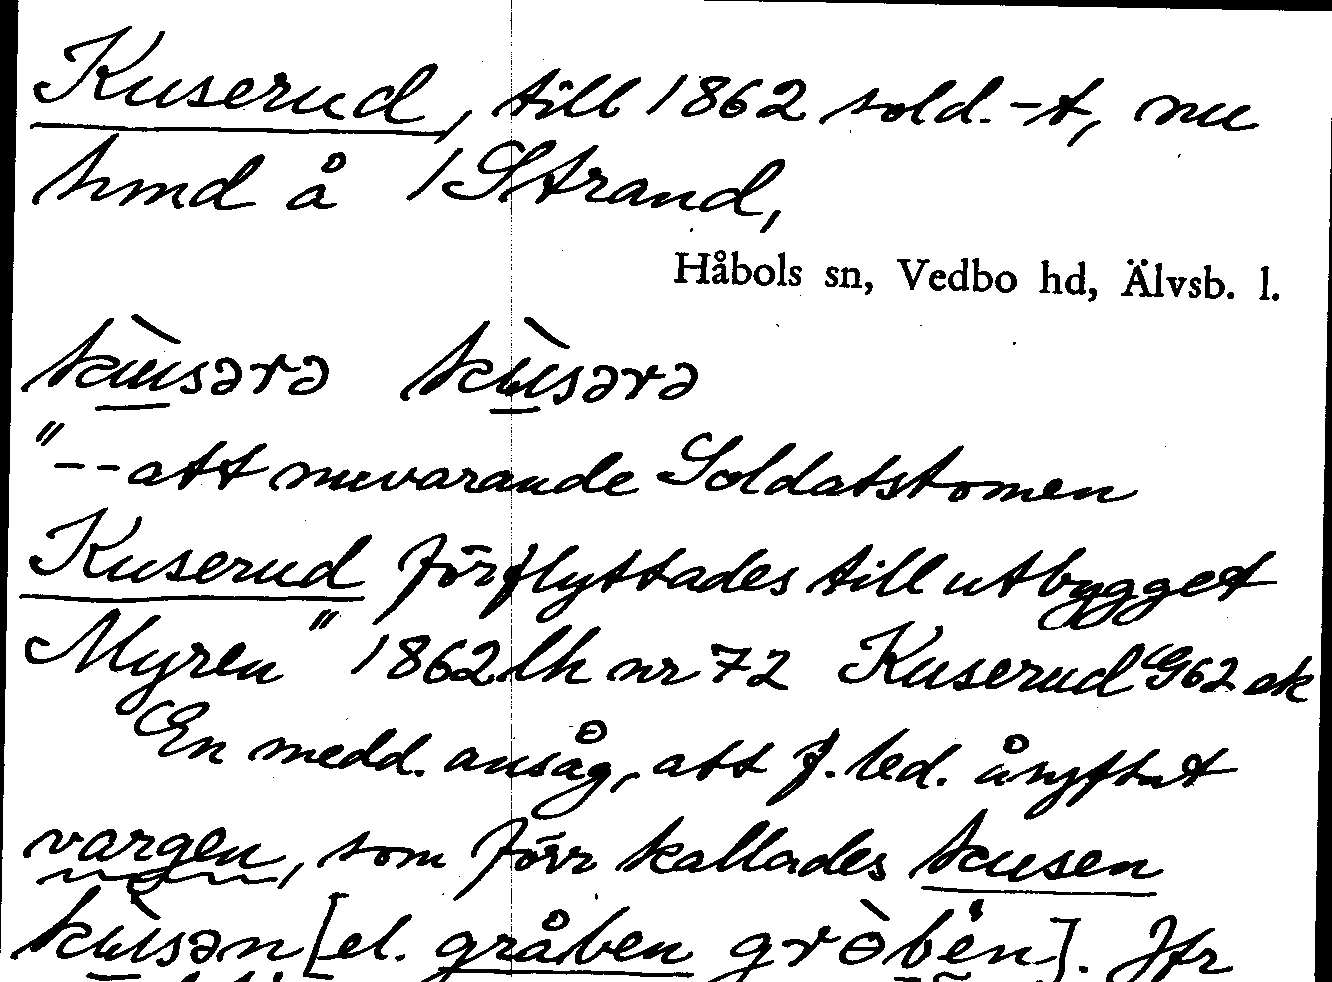 Kuserud, till 1862 sold.-t, nu
hmd å 1 Strand,
Håbols sn, Vedbo hd, Älvsb. l.
kùsərə kùsərə
"--att nuvarande Soldatstomen
Kuserud förflyttades till utbygget
Myren" 1862 lh nr 72 Kuserud G62 ek
En medd. ansåg, att f. led. åsyftat
vargen, som förr kallades kusen
kùsən [el. gråben gròben]. Jfr